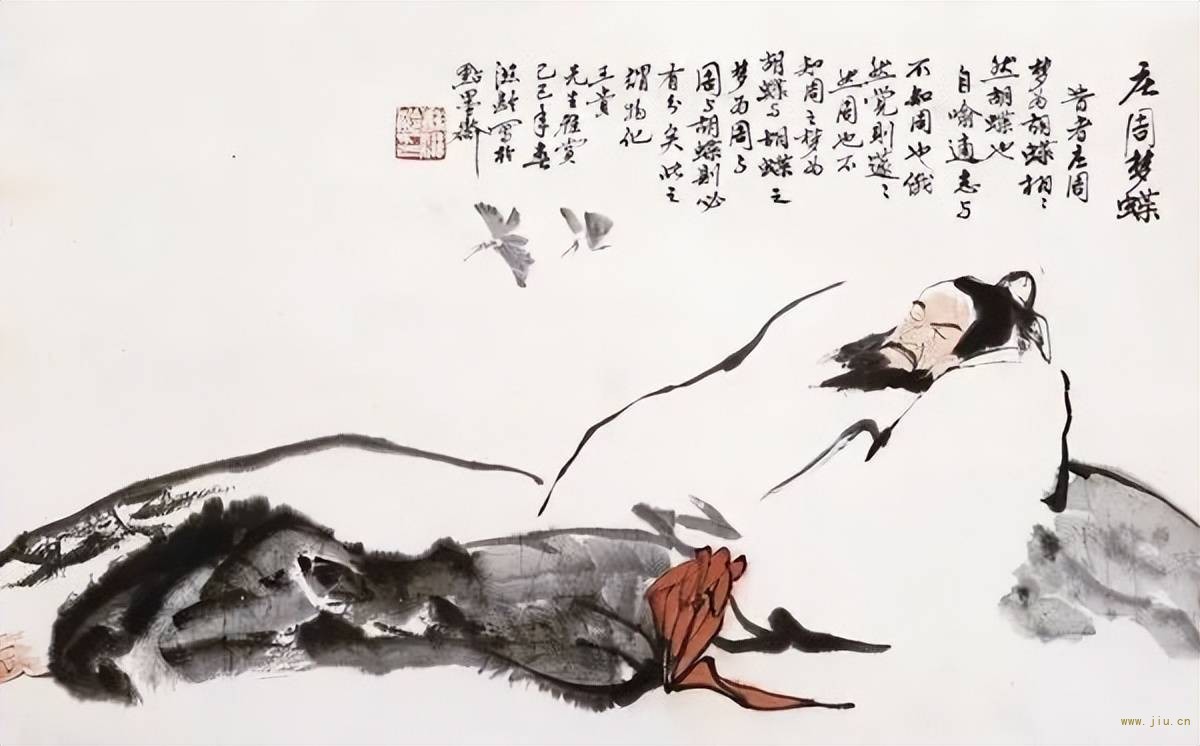 庄周梦蝶
昔者庄周
梦为胡蝶栩々
然胡蝶也
自喻適志与
不知周也俄
然觉则蘧々
然周也不
知周之梦为
胡蝶与胡蝶之
梦为周与
周与胡蝶则必
有分矣此之
謂物化
王贵
先生雅赏
己巳年春
写於
點墨斋
www.jiu.cn